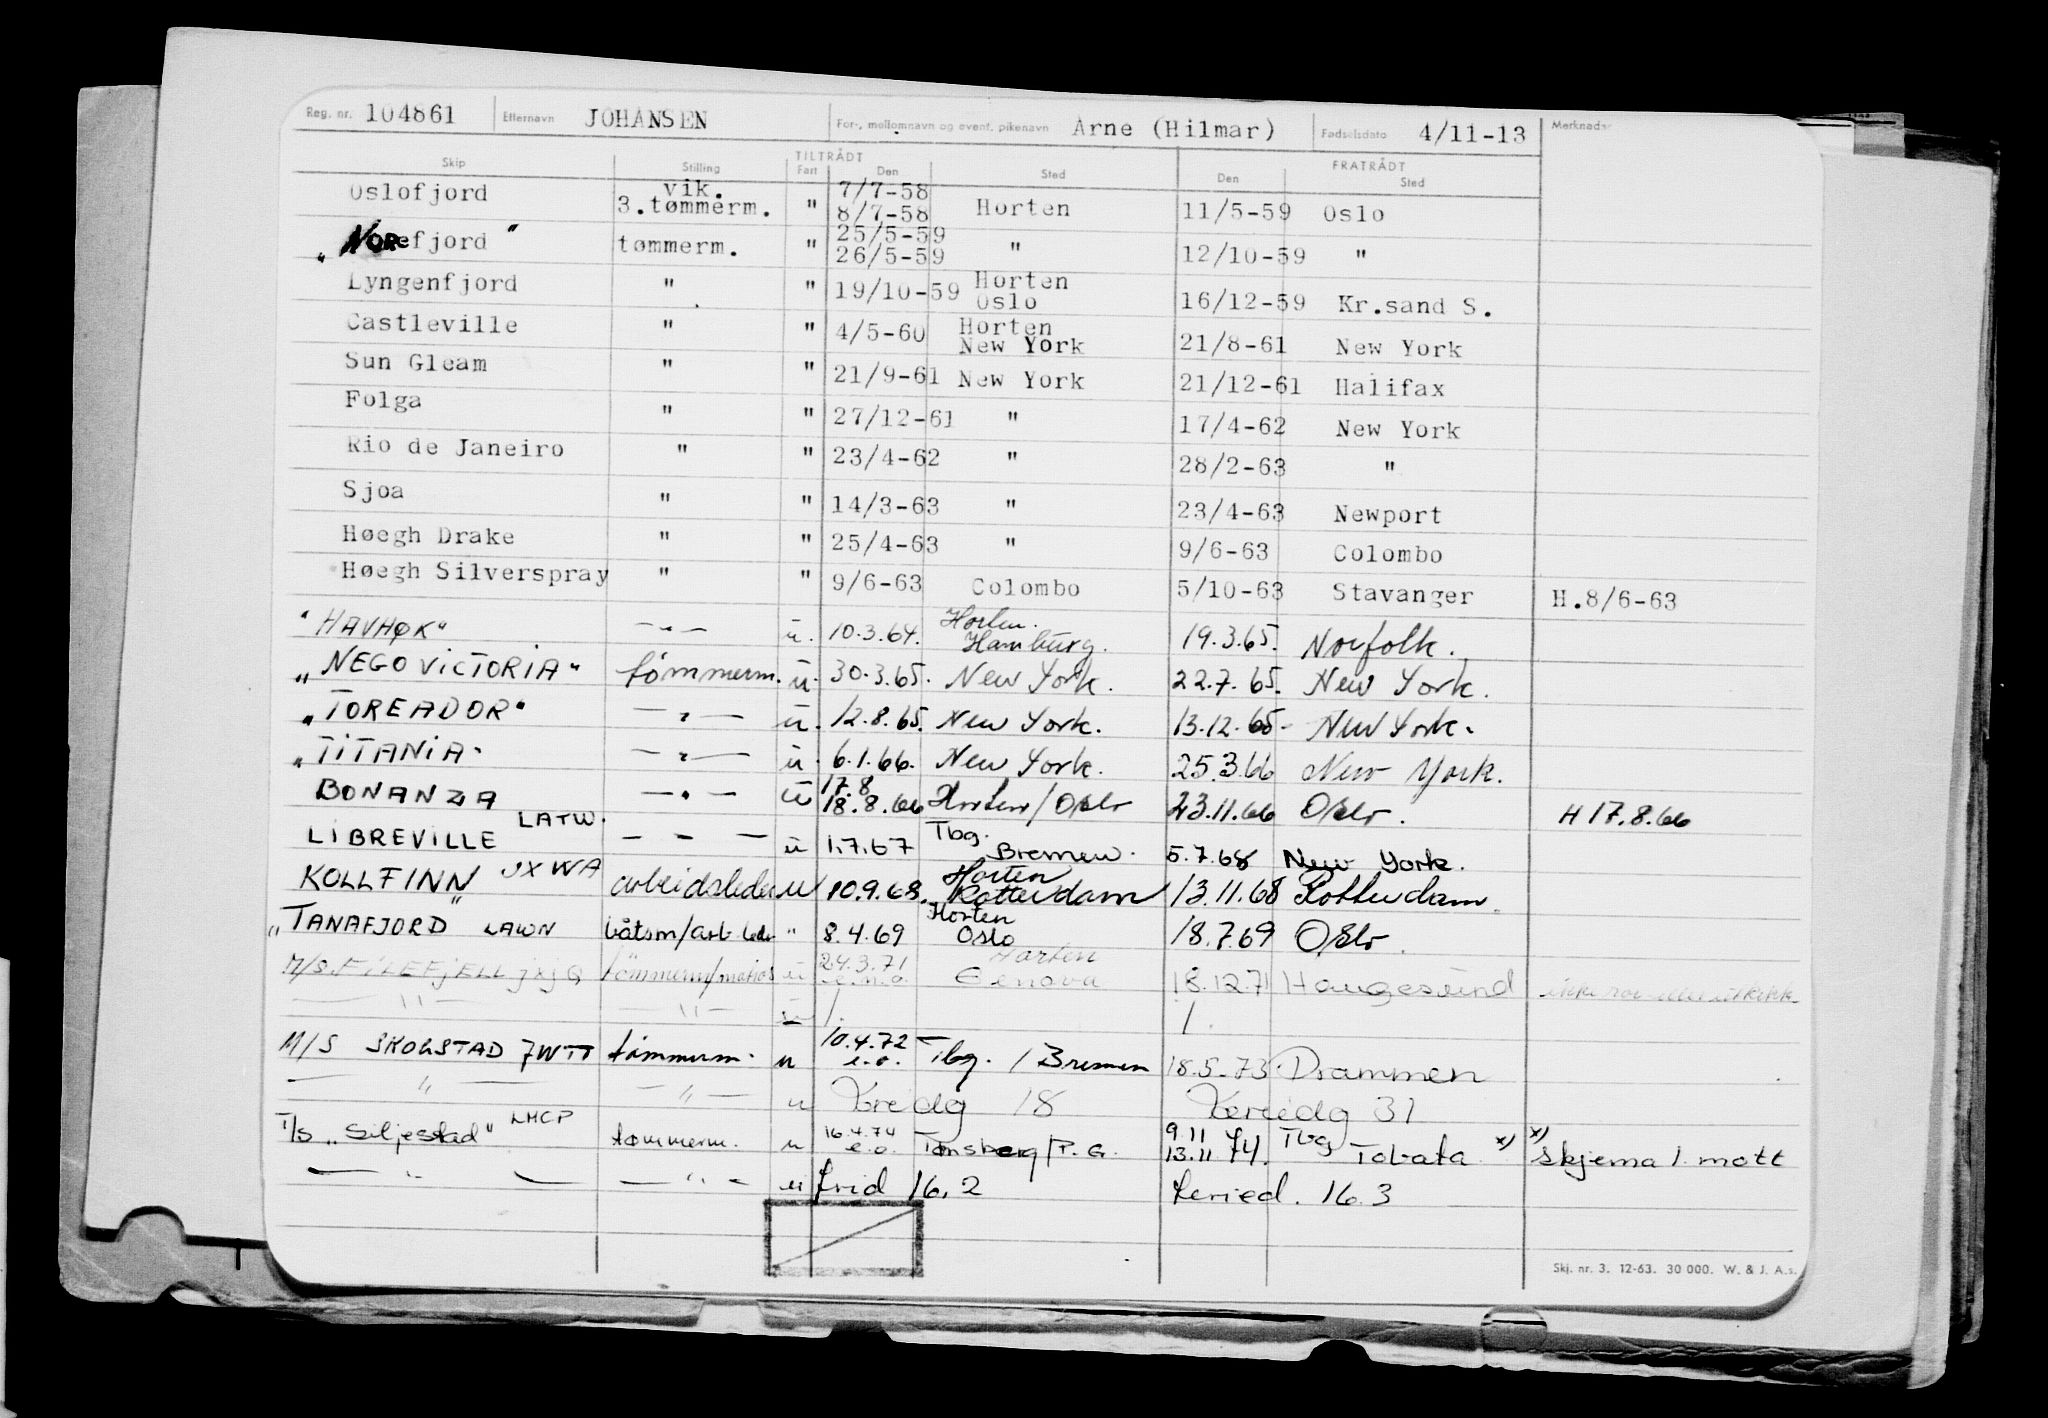 Reg. nr. 104861 Etternavn JOHANSEN For-, mellomnavn og event. pikenavn Arne (Hilmar) Fødselsdato 4/11-13 Merknader
TILTRÅDT FRATRÅDT
Skip Stilling Fart Den Sted Den Sted
Oslofjord vik. 3.tømmerm. " 7/7-58 8/7-58 Horten 11/5-59 Oslo
"NORefjord" tømmerm. " 25/5-59 26/5-59 " 12/10-59 "
Lyngenfjord " " 19/10-59 Horten Oslo 16/12-59 Kr.sand S.
Castleville " " 4/5-60 Horten New York 21/8-61 New York
Sun Gleam " " 21/9-61 New York 21/12-61 Halifax
Folga " " 27/12-61 " 17/4-62 New York
Rio de Janeiro " " 23/4-62 " 28/2-63 "
Sjoa " " 14/3-63 " 23/4-63 Newport
Høegh Drake " " 25/4-63 " 9/6-63 Colombo
Høegh Silverspray " " 9/6-63 Colombo 5/10-63 Stavanger H.8/6-63
"HAVHØK" -"- u. 10.3.64. Horten. Hamburg. 19.3.65. Norfolk.
"NEGO VICTORIA" tømmerm. u. 30.3.65. New York. 22.7.65. New York.
"TOREADOR" -"- u. 12.8.65. New York. 13.12.65. New York.
"TITANIA" -"- u. 6.1.66. New York. 25.3.66 New York.
BONANZA -"- u 17.8 18.8.66 Horten/Oslo 23.11.66 Oslo. H 17.8.66
LIBREVILLE LATW. - - - u 1.7.67 Tbg. Bremen. 5.7.68 New York.
KOLLFINN JXWA arbeidsleder u 10.9.68. Horten Rotterdam 13.11.68 Rotterdam.
"TANAFJORD" LAWN båtsm/arb leder " 8.4.69 Horten Oslo 18.7.69 Oslo.
M/S. FILEFJELL jxjQ tømmerm/matros u 24.3.71 e.m.o. Horten Genova 18.12.71 Haugesund ikke ror eller utkikk
-"- -"- u 1. 1.
M/S SKOLSTAD JWTT tømmerm. u 10.4.72 e.o. Tbg. / Bremen 18.5.73 Drammen
-"- -"- u 18 31
T/S "Siljestad" LHCP tømmerm. u 16.4.74 e.o. Tønsberg/P.G. 9.11 13.11 74. Tbg Tobata x) x) skjema 1 mott
-"- -"- u frid 16.2 feried. 16.3
Skj. nr. 3. 12-63. 30 000. W. & J. A.s.